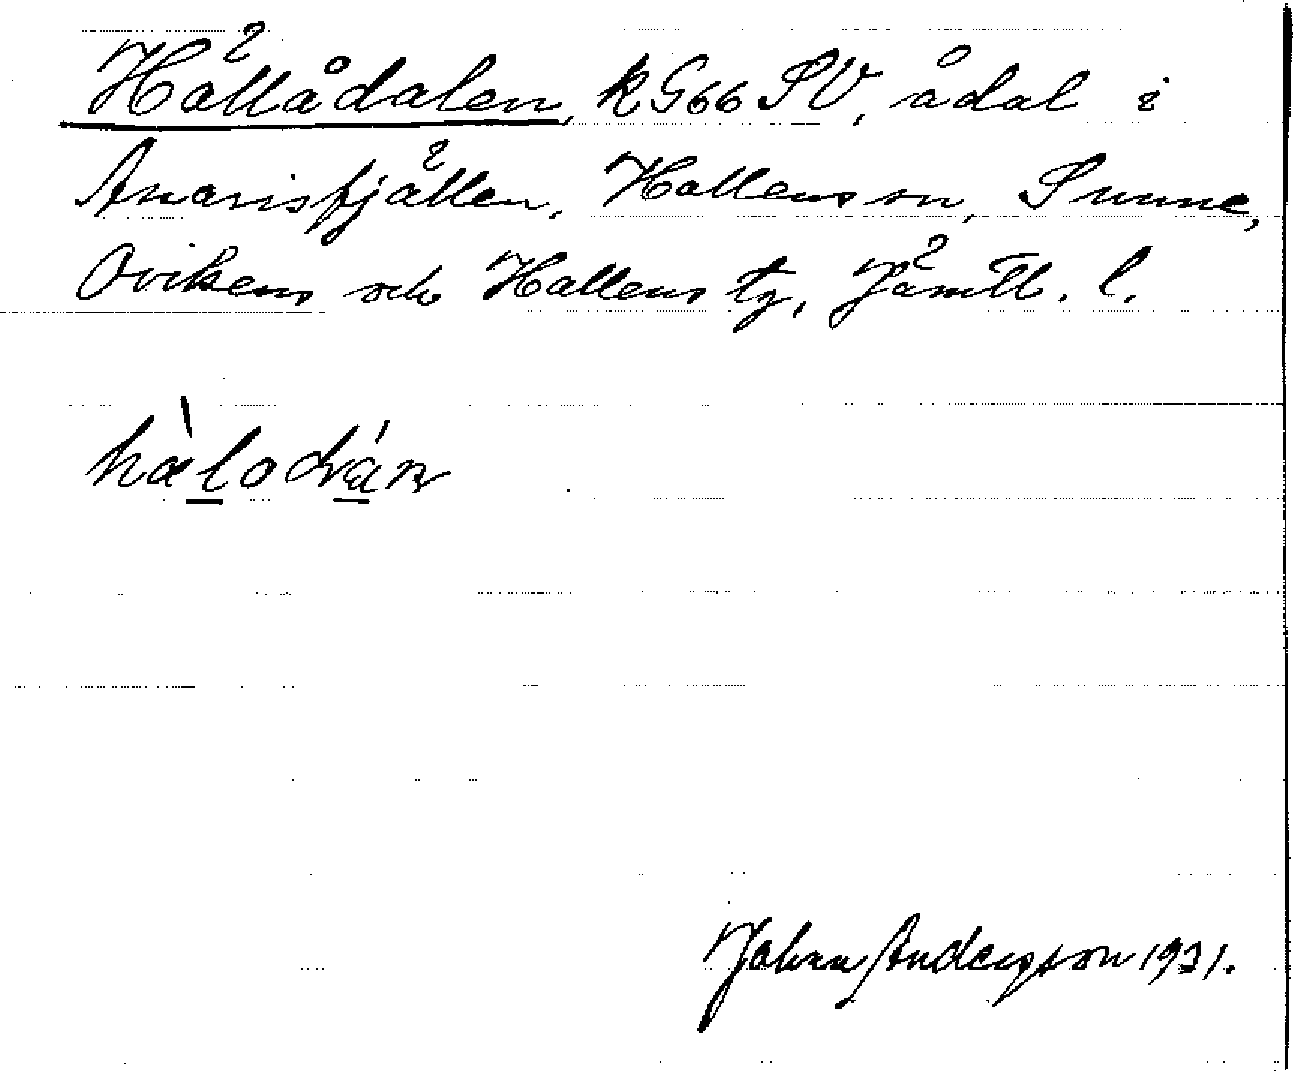 Hällådalen, k G66 SV, ådal i
Anarisfjällen, Hallens sn, Sunne,
Ovikens och Hallens tg, Jämtl. l.
hälodán
Johan Andersson 1931.